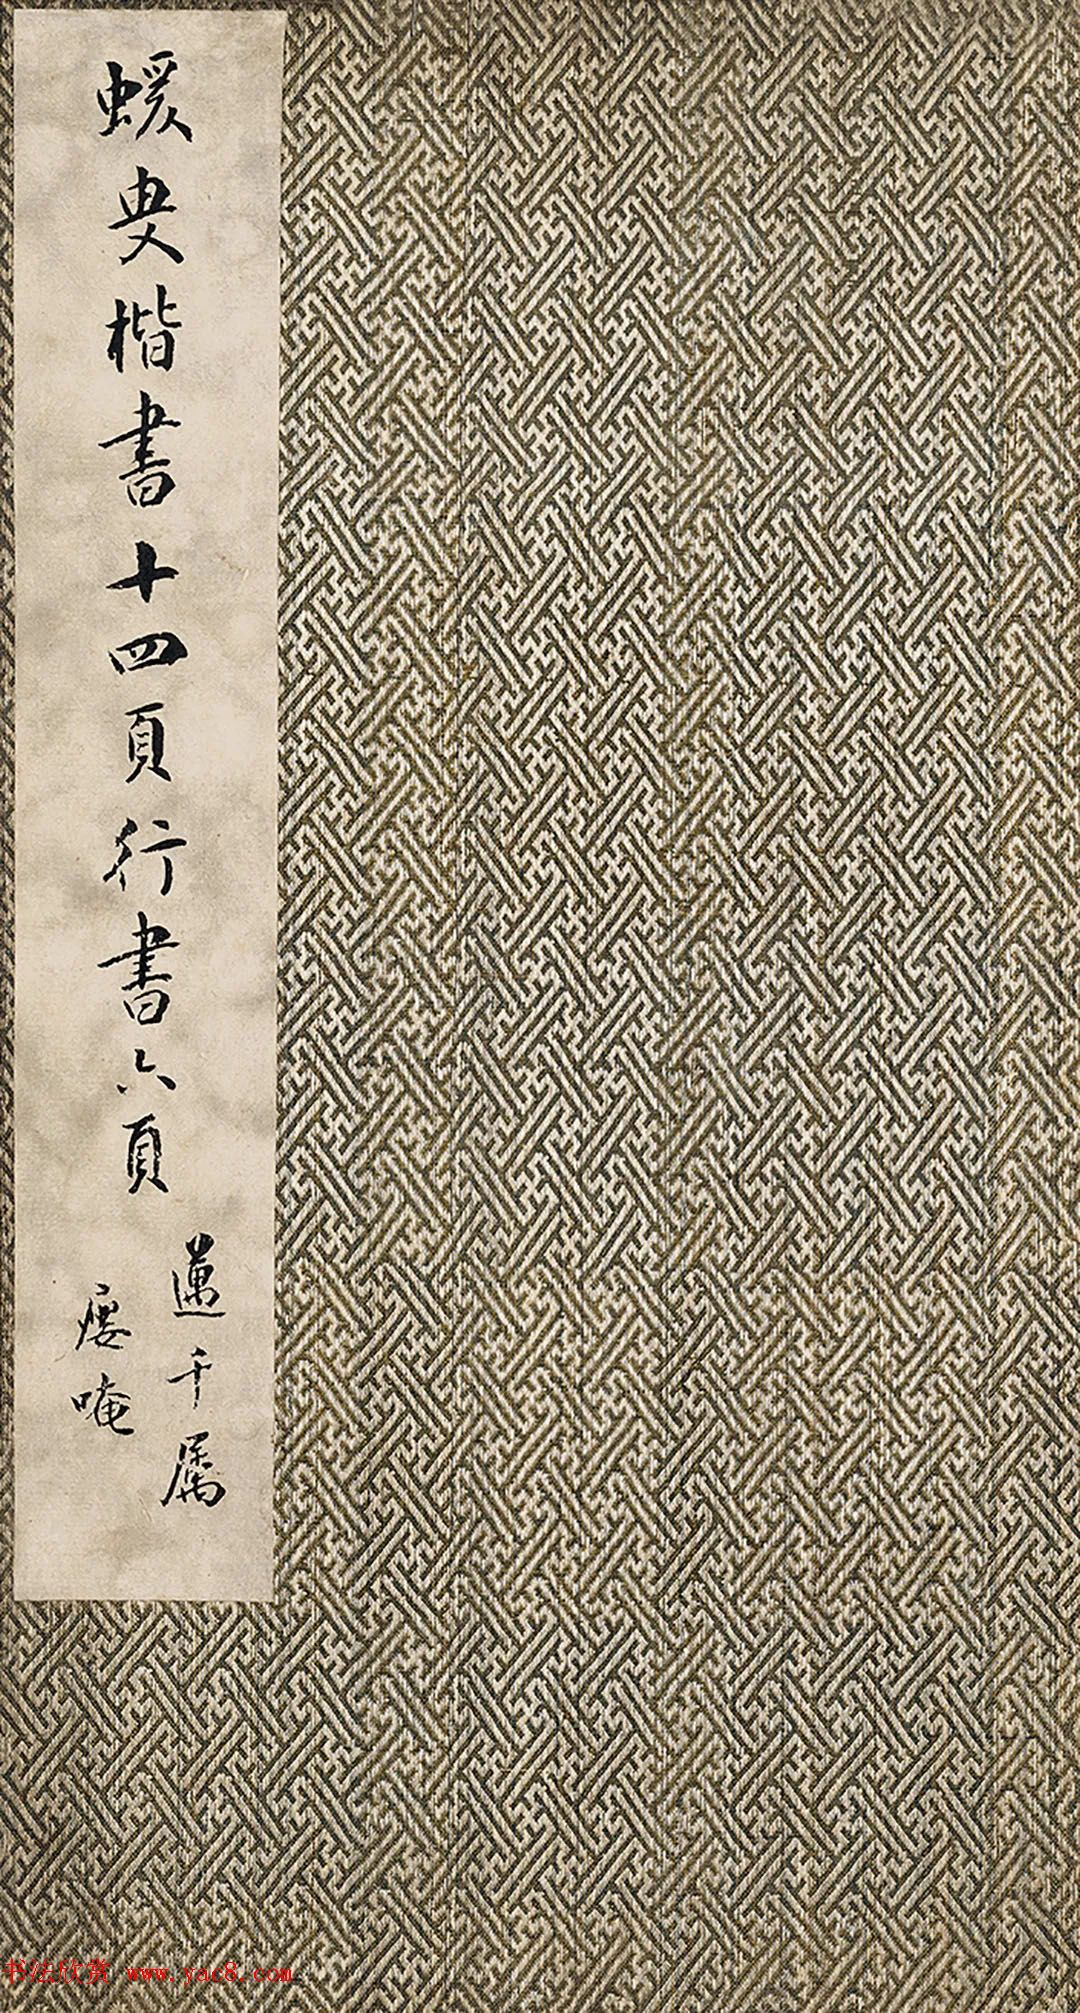 蝯叟楷書十四頁行書六頁
邁千屬
書法欣赏 www.yac8.com